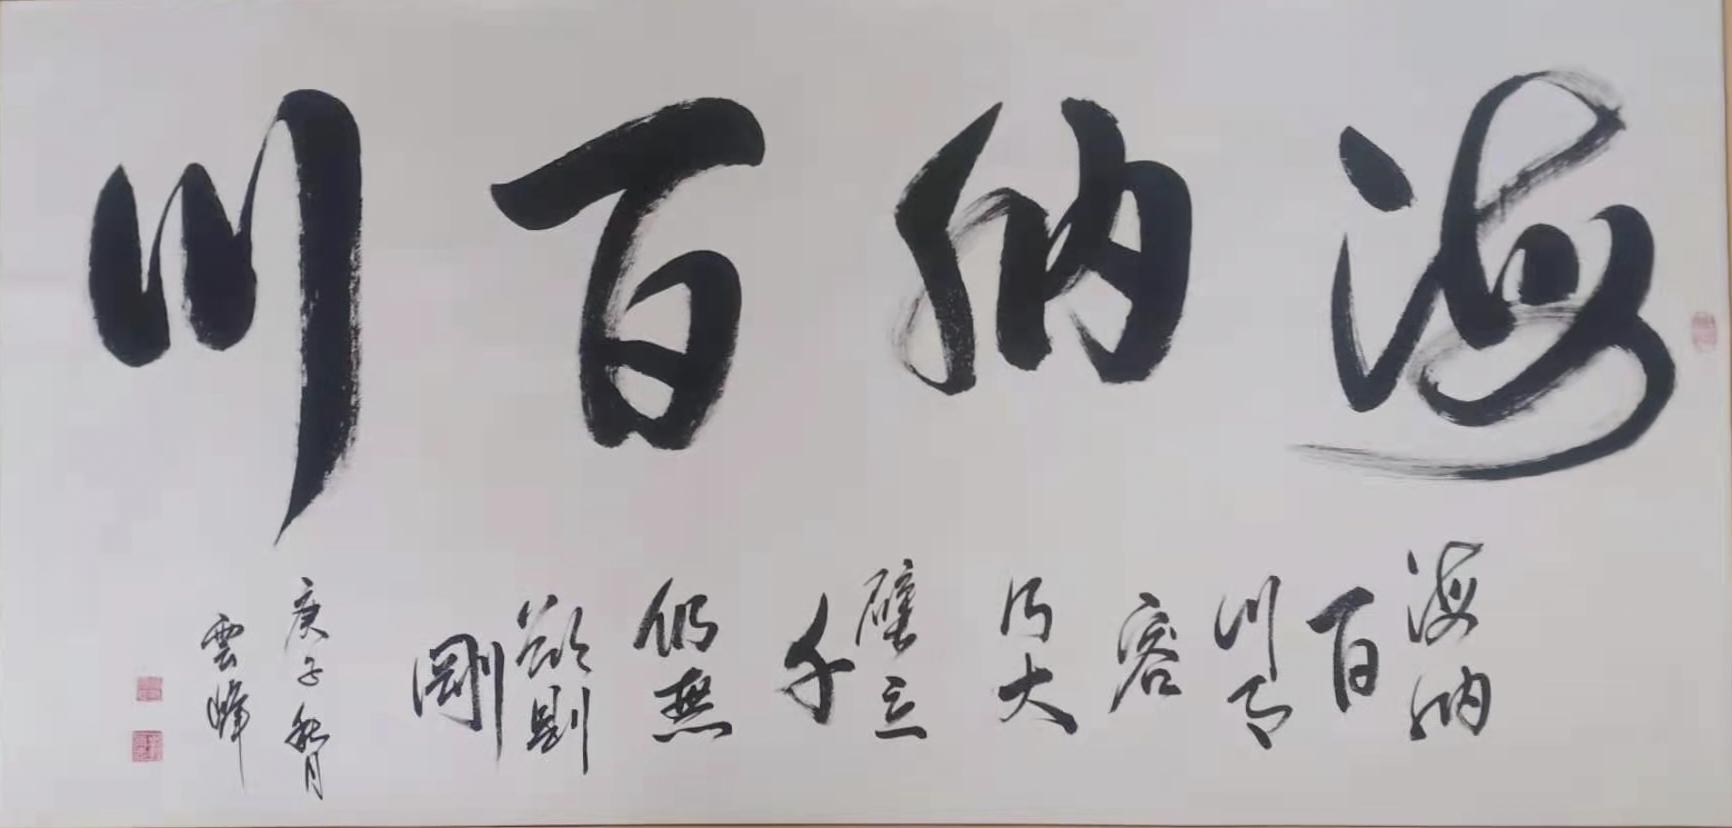 海納百川
海納
百
川有
容
乃大
壁立
千
仞無
欲則
剛
庚子秋月
雲峰